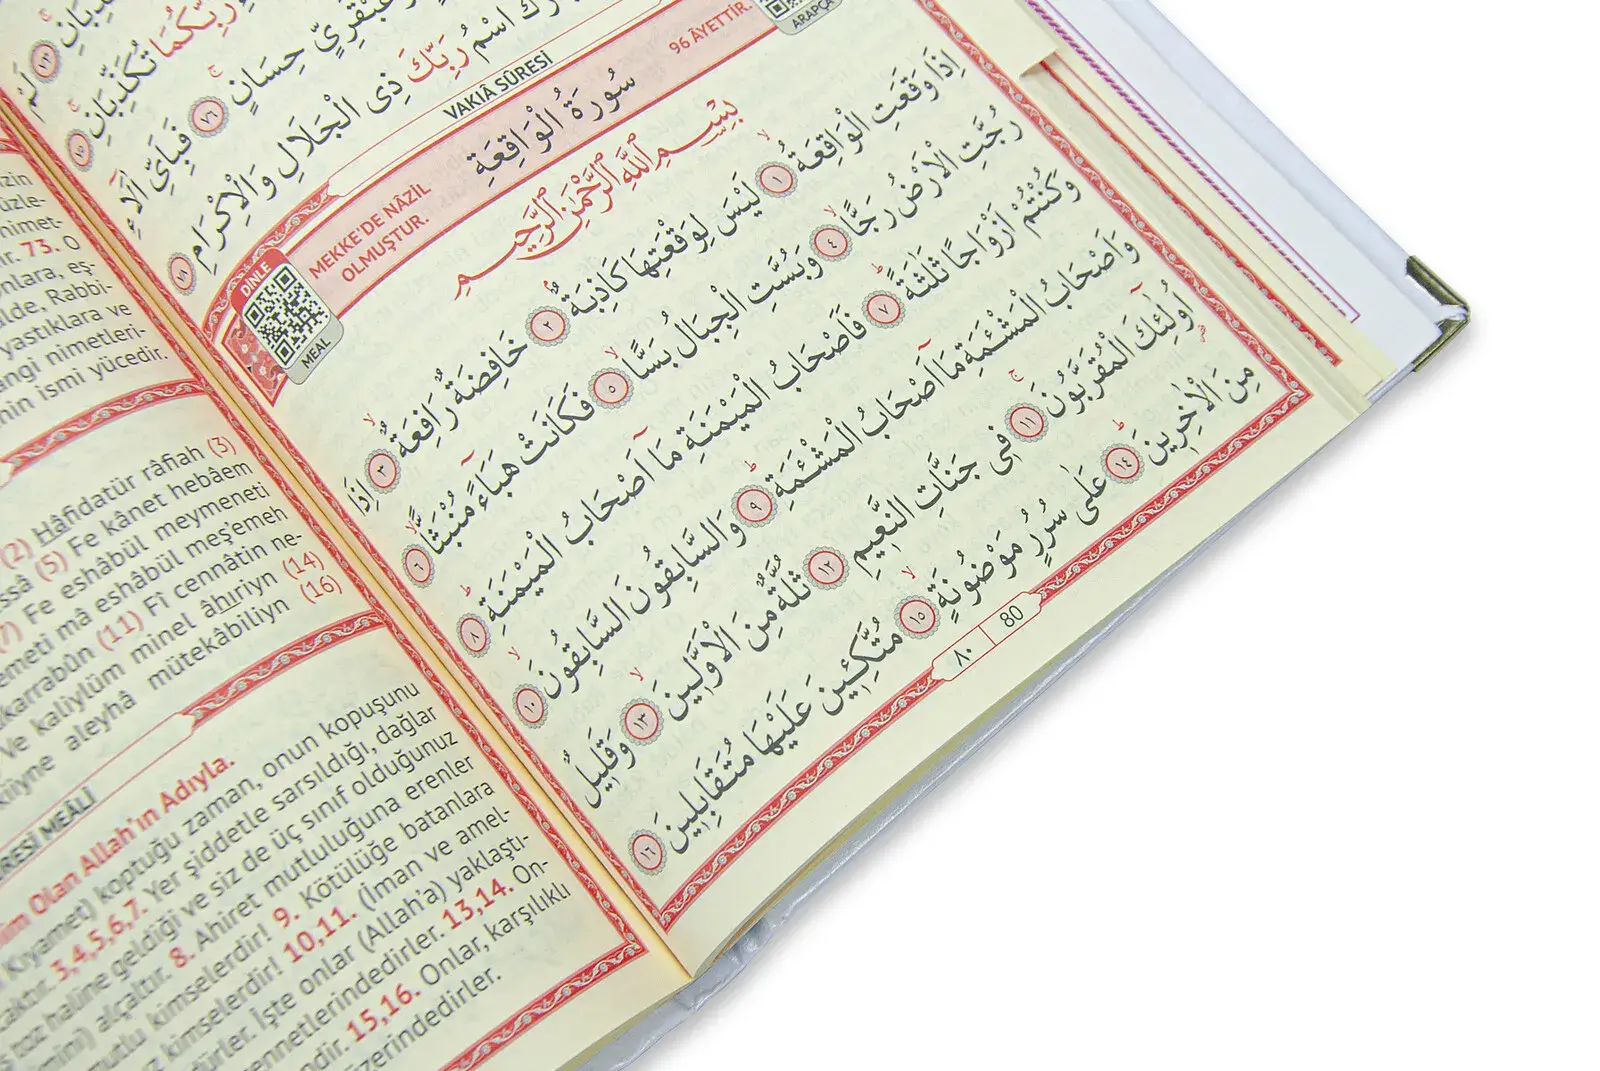 لَمْ
رَبِّكُمَا تُكَذِّبَانِ ٧٥
عَبْقَرِيٍّ حِسَانٍ ٧٦ فَبِاَيِّ اٰلَٓاءِ
اسْمُ رَبِّكَ ذِى الْجَلَالِ وَالْاِكْرَامِ ٧٨
VAKIÂ SÛRESİ
MEKKE'DE NÂZİL OLMUŞTUR.
سُورَةُ الْوَاقِعَةِ
96 ÂYETTİR.
ARAPÇA
DİNLE
MEAL
بِسْمِ اللّٰهِ الرَّحْمٰنِ الرَّحِيمِ
اِذَا وَقَعَتِ الْوَاقِعَةُ ١ لَيْسَ لِوَقْعَتِهَا كَاذِبَةٌ ٢ خَافِضَةٌ رَافِعَةٌ ٣ اِذَا
رُجَّتِ الْاَرْضُ رَجًّا ٤ وَبُسَّتِ الْجِبَالُ بَسًّا ٥ فَكَانَتْ هَبَٓاءً مُنْبَثًّا ٦
وَكُنْتُمْ اَزْوَاجًا ثَلٰثَةً ٧ فَاَصْحَابُ الْمَيْمَنَةِ مَٓا اَصْحَابُ الْمَيْمَنَةِ ٨
وَاَصْحَابُ الْمَشْـَٔمَةِ مَٓا اَصْحَابُ الْمَشْـَٔمَةِ ٩ وَالسَّابِقُونَ السَّابِقُونَ ١٠
اُو۬لٰٓئِكَ الْمُقَرَّبُونَ ١١ فِى جَنَّاتِ النَّعِيمِ ١٢ ثُلَّةٌ مِنَ الْاَوَّلِينَ ١٣ وَقَلِيلٌ
مِنَ الْاٰخِرِينَ ١٤ عَلٰى سُرُرٍ مَوْضُونَةٍ ١٥ مُتَّكِـِٔينَ عَلَيْهَا مُتَقَابِلِينَ ١٦
٨٠ 80
nimet-
73. O
onlara, eş-
Rabbi-
yastıklara ve
angi nimetleri-
ismi yücedir.
(2) Hâfidatür râfiah (3)
(5) Fe kânet hebâem
(7) Fe eshâbül meymeneti
emeti mâ eshâbül meş'emeh
karrabûn (11) Fî cennâtin ne-
Ve kaliylüm minel âhıriyn (14)
aleyhâ mütekâbiliyn (16)
RESİ MEÂLİ
Olan Allah'ın Adıyla.
Kıyamet) koptuğu zaman, onun kopuşunu
3,4,5,6,7. Yer şiddetle sarsıldığı, dağlar
toz haline geldiği ve siz de üç sınıf olduğunuz
alçaltır. 8. Ahiret mutluluğuna erenler
mutlu kimselerdir! 9. Kötülüğe batanlara
kimselerdir! 10,11. (İman ve amel-
İşte onlar (Allah'a) yaklaştı-
ennetlerindedirler. 13,14. On-
15,16. Onlar, karşılıklı
üzerindedirler.